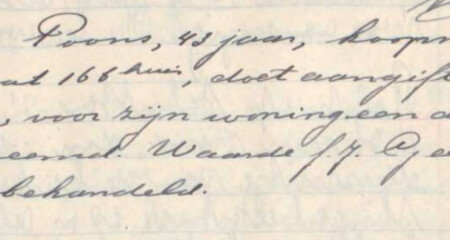 Poons, 43 jaar, koopm
at 166 huis, doet aangift
, voor zijn woning een d
eemd. Waarde f.7. Gee
behandeld.